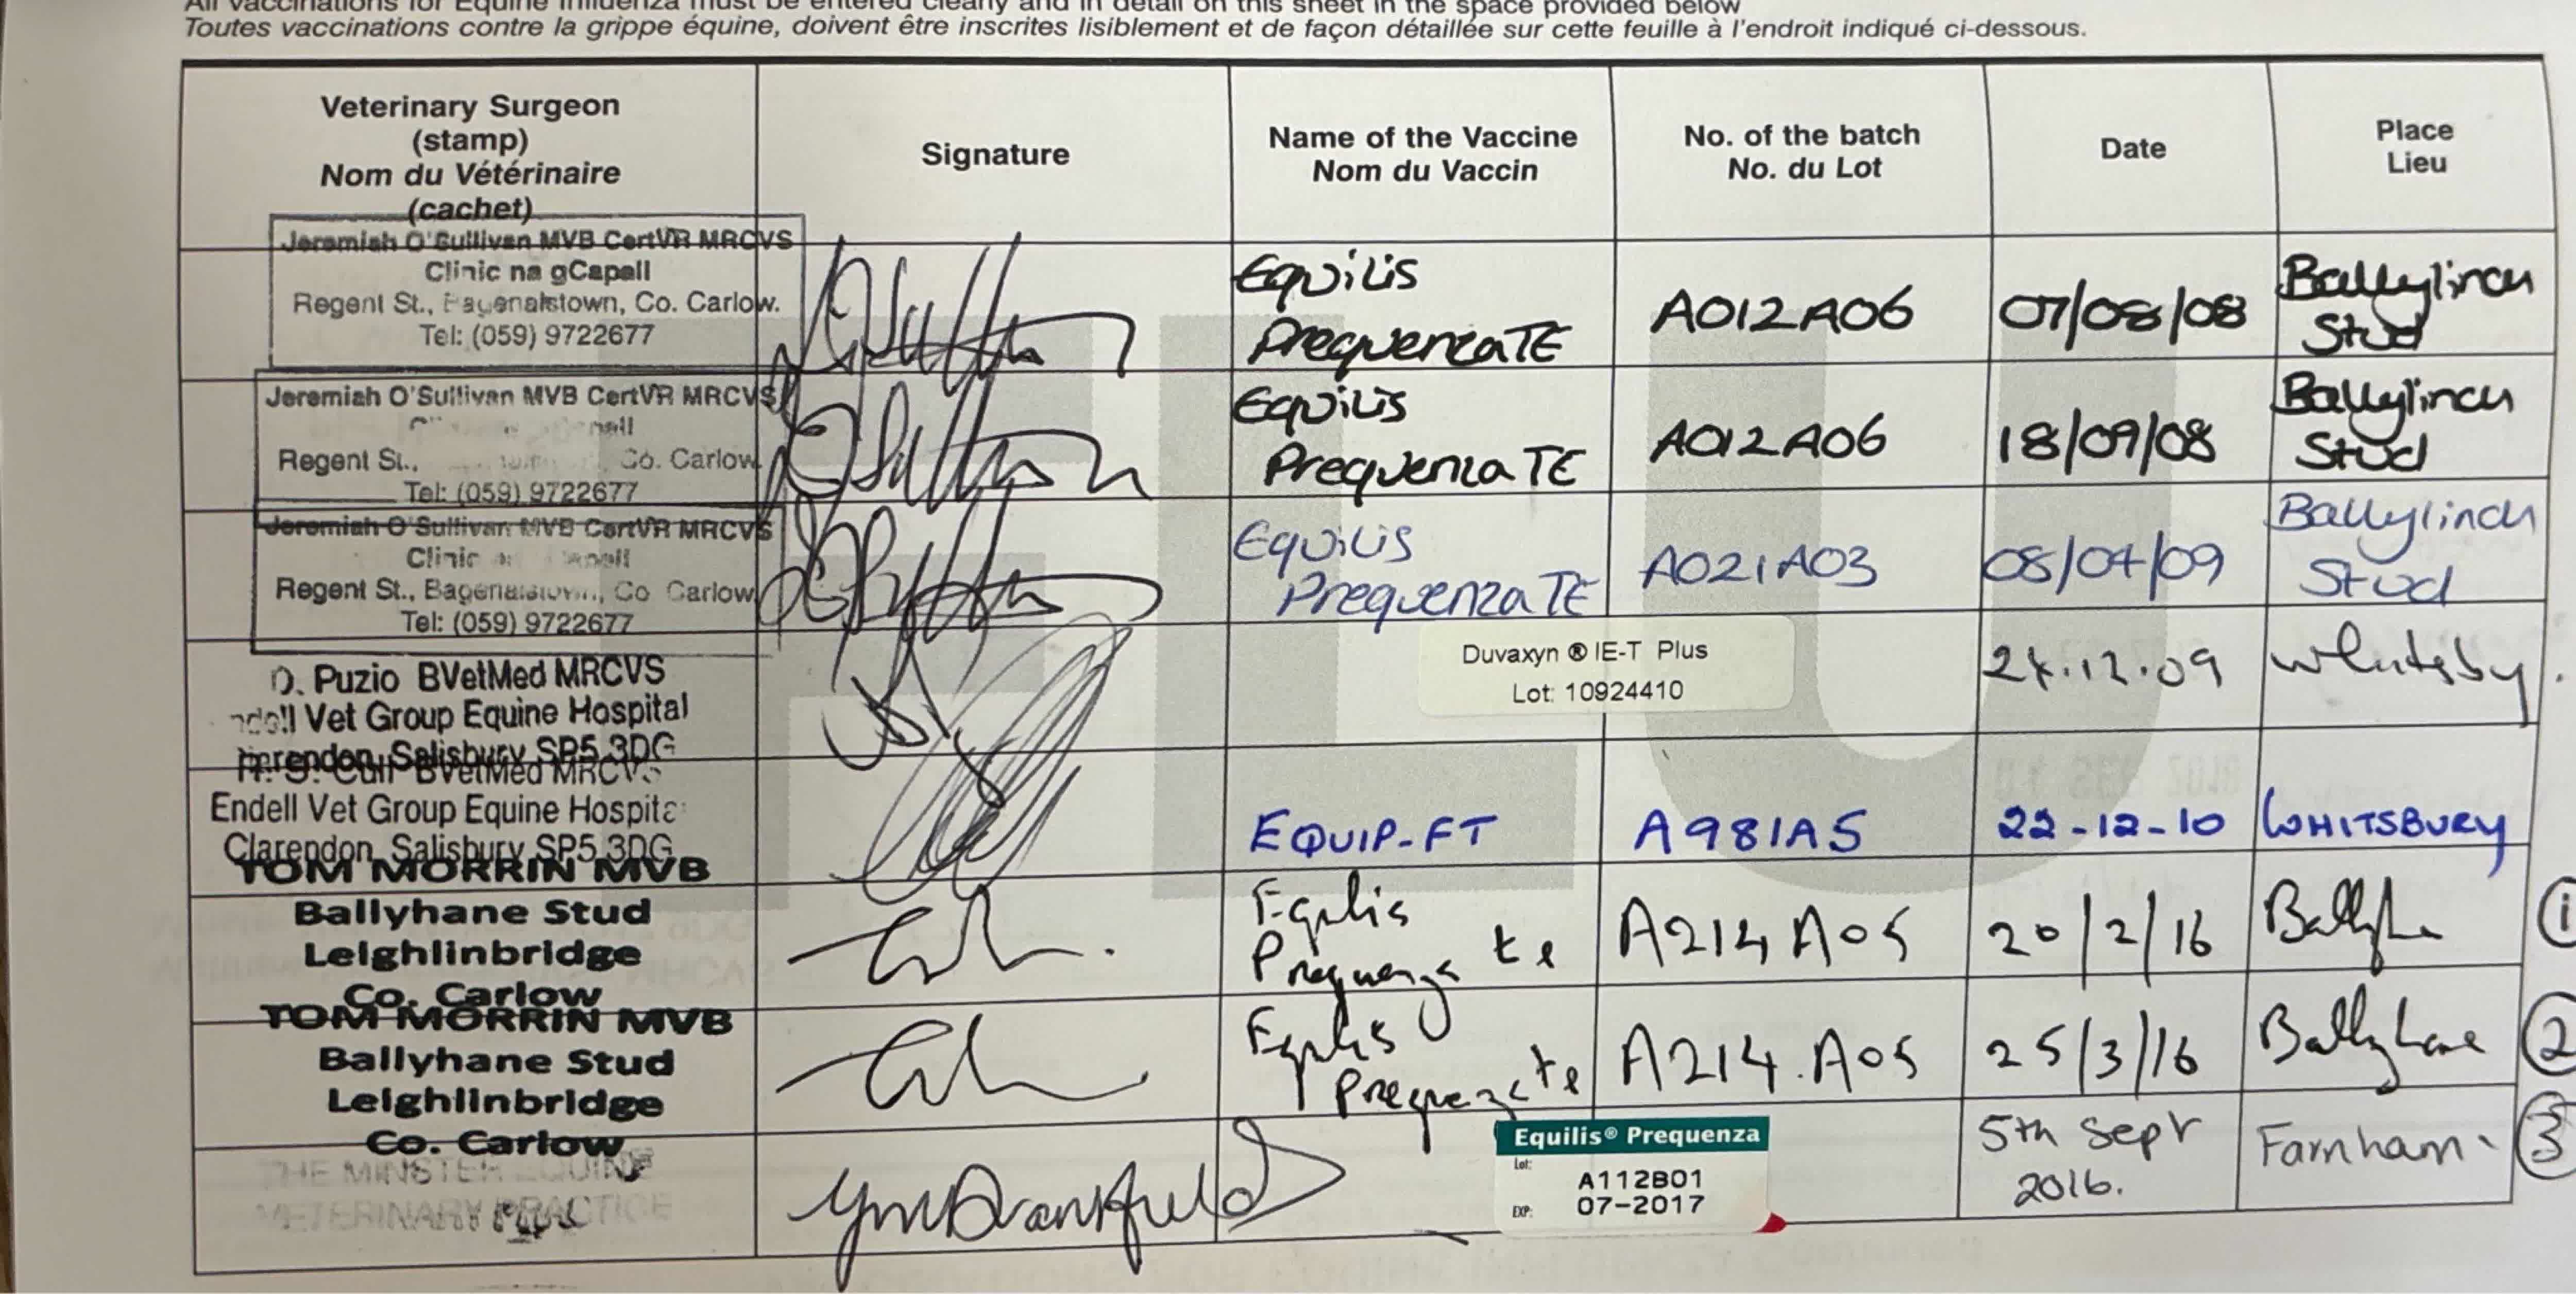 All vaccinations for Equine Influenza must be entered clearly and in detail on this sheet in the space provided below
Toutes vaccinations contre la grippe équine, doivent être inscrites lisiblement et de façon détaillée sur cette feuille à l'endroit indiqué ci-dessous.
Veterinary Surgeon
(stamp)
Nom du Vétérinaire
(cachet)
Signature
Name of the Vaccine
Nom du Vaccin
No. of the batch
No. du Lot
Date
Place
Lieu
Jeremiah O'Sullivan MVB CertVR MRCVS
Clinic na gCapall
Regent St., Bagenalstown, Co. Carlow.
Tel: (059) 9722677
Equilis
PrequenzaTE
A012A06
07/08/08
Ballylinch
Stud
Jeremiah O'Sullivan MVB CertVR MRCVS
Regent St., Co. Carlow
Tel: (059) 9722677
Equilis
Prequenza TE
A012A06
18/09/08
Ballylinch
Stud
Jeremiah O'Sullivan MVB CertVR MRCVS
Clinic
Regent St., Bagenalstown, Co Carlow
Tel: (059) 9722677
Equilis
PrequenzaTE
A021A03
08/04/09
Ballylinch
Stud
D. Puzio BVetMed MRCVS
Vet Group Equine Hospital
Salisbury SP5 3DG
Duvaxyn ® IE-T Plus
Lot: 10924410
.12.09
BVetMed MRCVS
Endell Vet Group Equine Hospital
Clarendon, Salisbury SP5 3DG
EQUIP-FT
A981A5
22-12-10
WHITSBURY
TOM MORRIN MVB
Ballyhane Stud
Leighlinbridge
Co. Carlow
Equilis
Prequenza te
A214A05
20/2/16
1
TOM MORRIN MVB
Ballyhane Stud
Leighlinbridge
Co. Carlow
Equilis
Prequenza te
A214.A05
25/3/16
Ballyhane
2
THE MINSTER EQUINE
VETERINARY PRACTICE
Equilis® Prequenza
Lot:
A112B01
EXP:
07-2017
5th Sept
2016.
Farnham
3
FEU